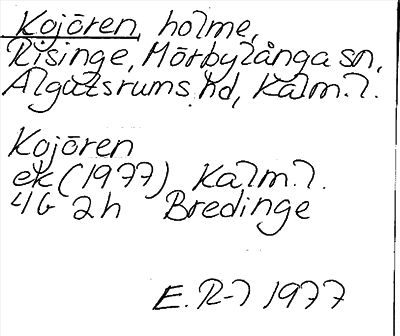 Kojören, holme,
Risinge, Mörbylånga sn,
Algutsrums hd, Kalm. l.
Kojören
ek (1977) Kalm. l.
4G 2h Bredinge
E. R-l 1977